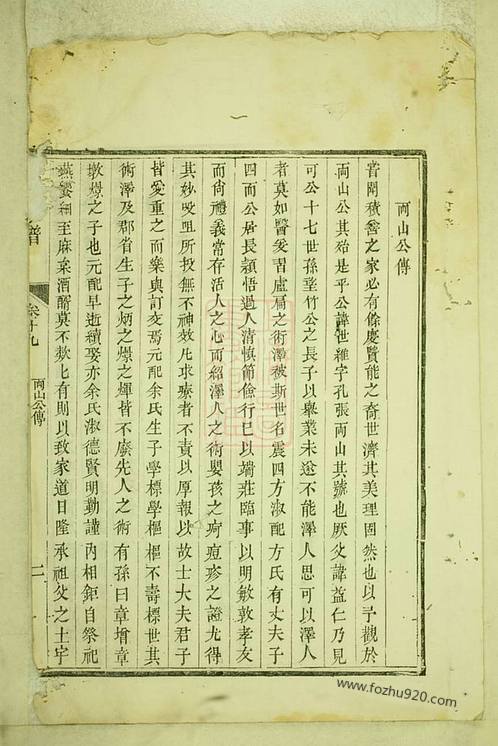 兩山公傳
嘗聞積善之家必有餘慶賢能之裔世濟其美理固然也以予觀於
兩山公其殆是乎公諱世維字孔張兩山其號也厥父諱益仁乃見
可公十七世孫堂竹公之長子以舉業未遂不能澤人思可以澤人
者莫如醫爰習盧扁之術澤被斯世名震四方淑配方氏有丈夫子
四而公居長穎悟過人清慎簡儉行已以端莊臨事以明敏敦孝友
而尚禮義常存活人之心而紹澤人之術嬰孩之疴痘疹之證尤得
其妙㕮咀所投無不神效凡求療者不責以厚報以故士大夫君子
皆愛重之而樂與訂交焉元配余氏生子學標學樞樞不壽標世其
術澤及郡省生子之炳之燝之煇皆不廢先人之術有孫曰章增章
墩燝之子也元配早逝續娶亦余氏淑德賢明勤謹內相鉅自祭祀
燕饗細至麻枲酒醑莫不欵匕有則以致家道日隆承祖父之土宇
譜
卷十九
兩山公傳
二
www.fozhu920.com